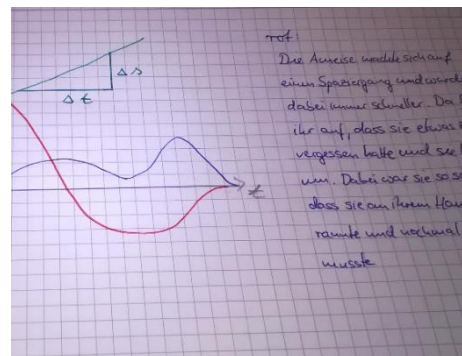 Δs
Δt
t
rot:
Die Ameise machte sich auf
einen Spaziergang und wurde
dabei immer schneller. Da
ihr auf, dass sie etwas
vergessen hatte und sie
um. Dabei war sie so
dass sie an ihrem
rannte und nochmal
musste